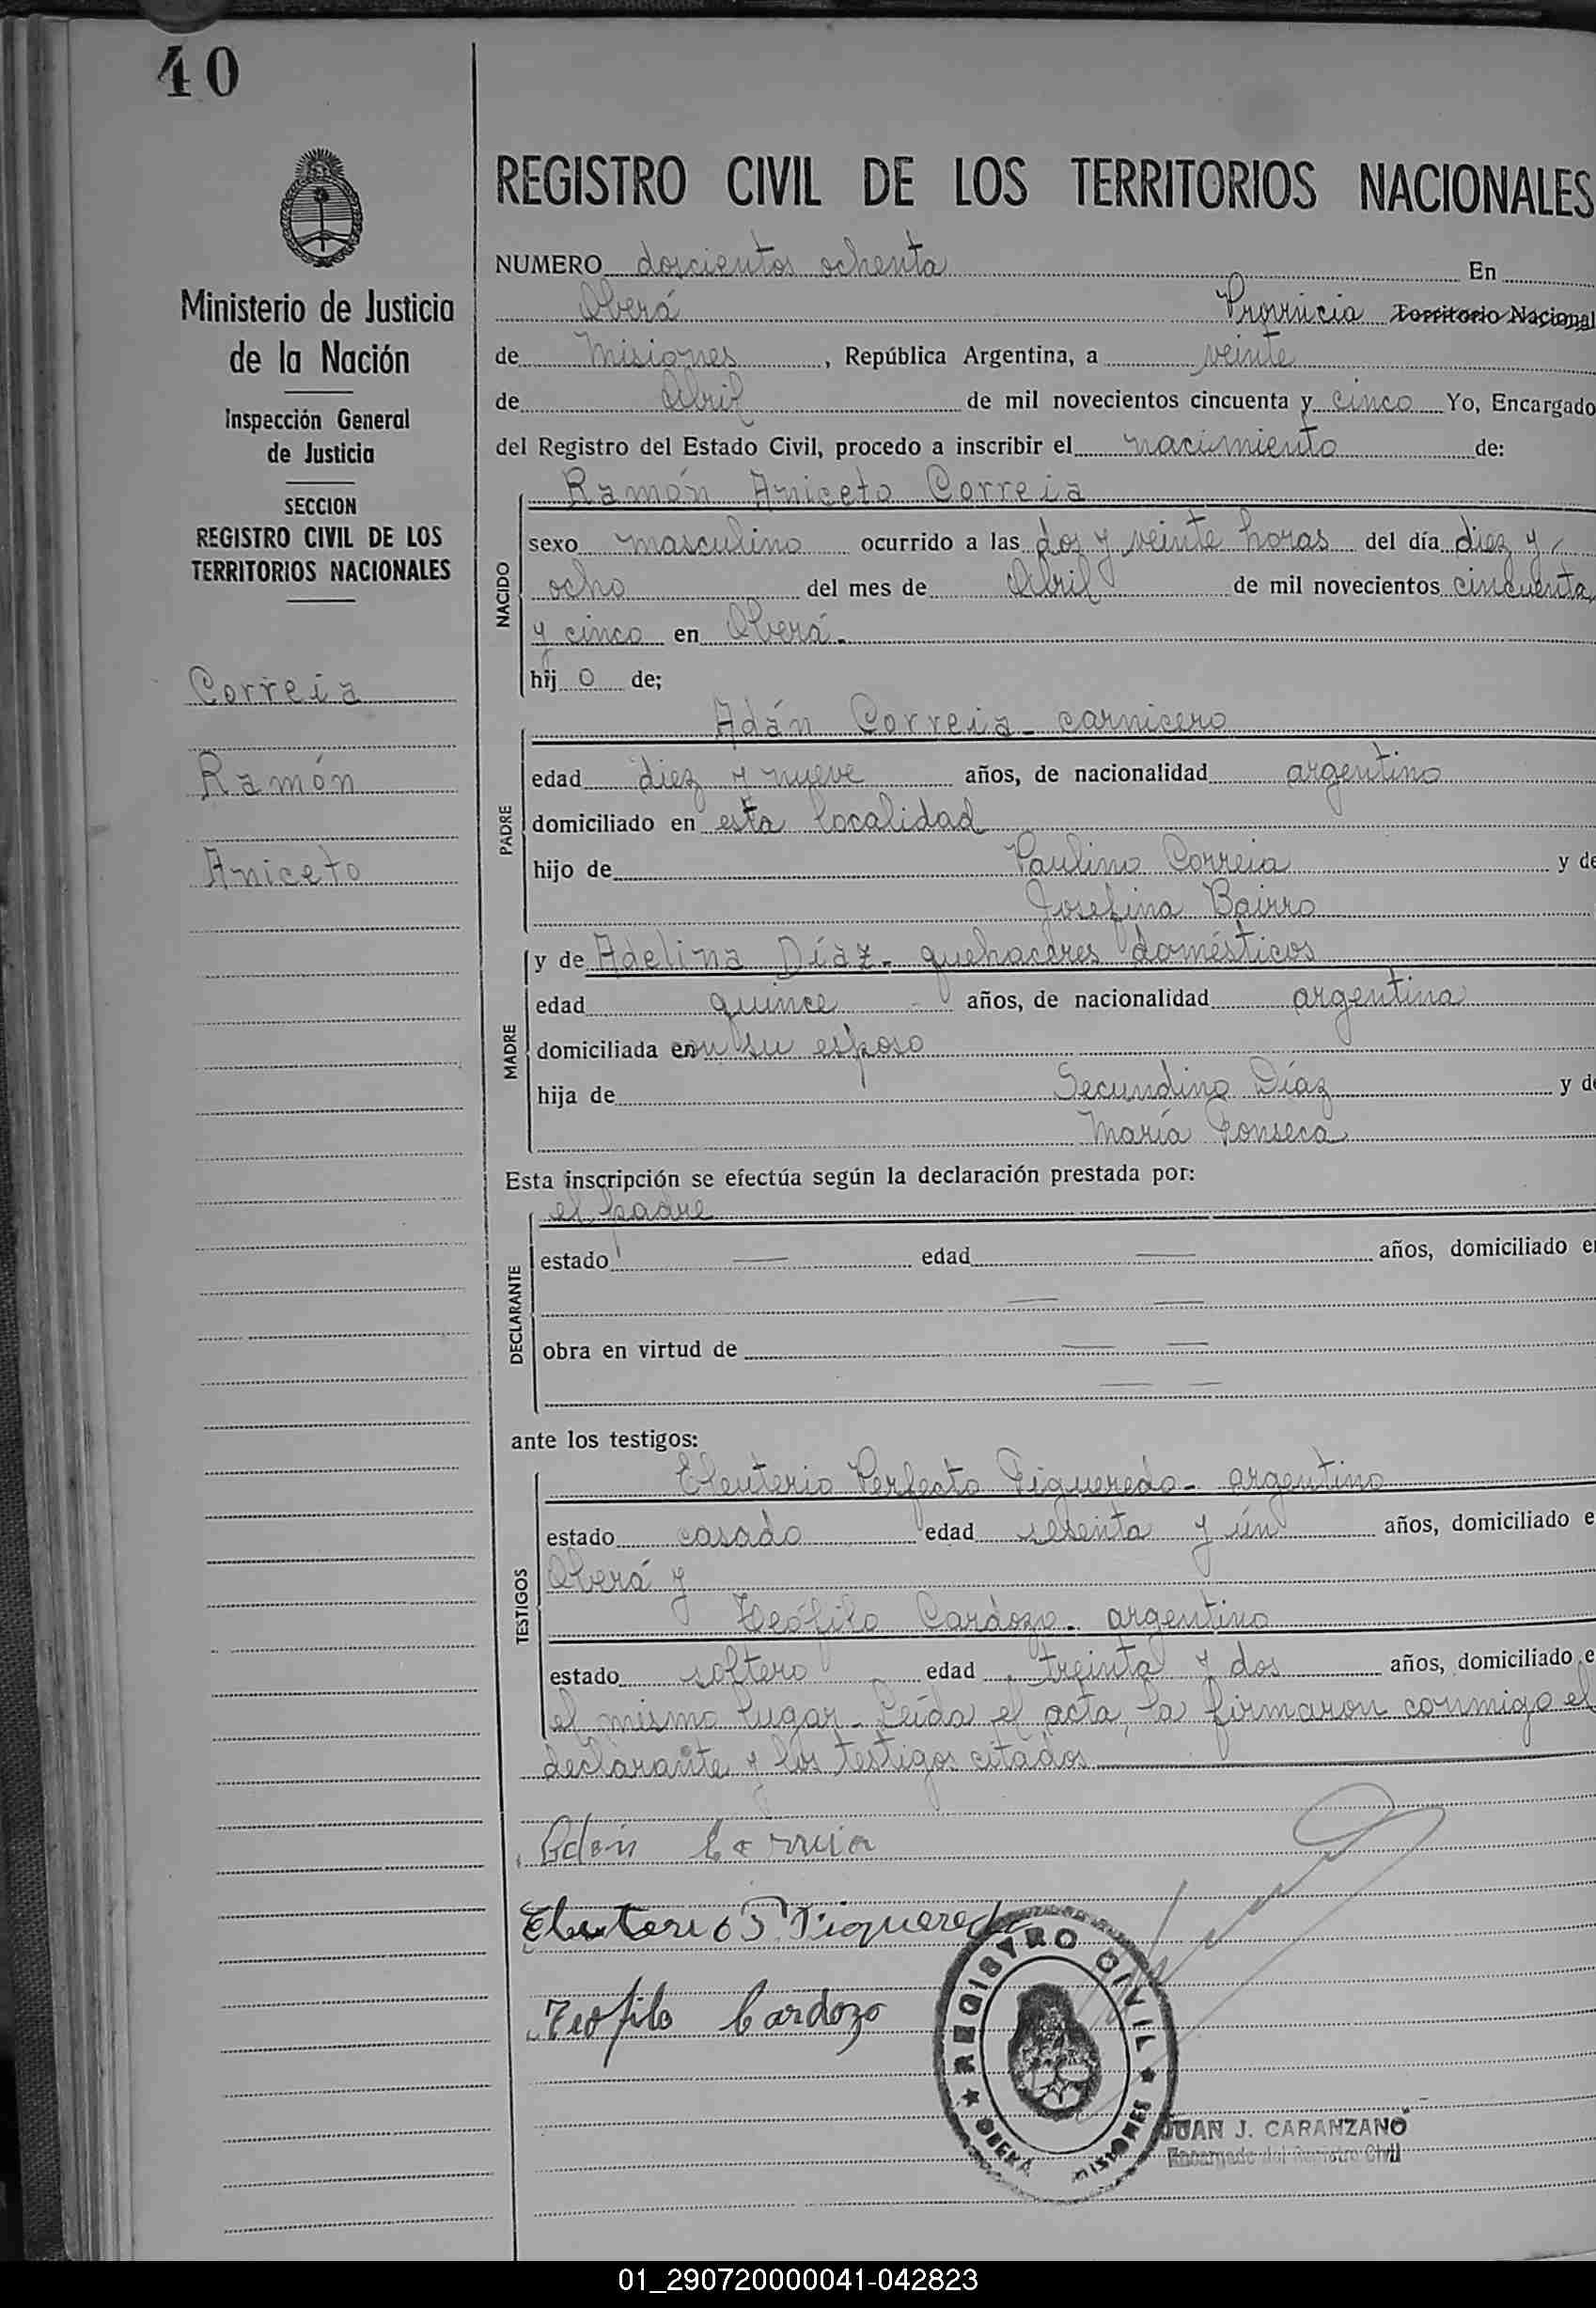 40
Ministerio de Justicia
de la Nación
Inspección General
de Justicia
SECCION
REGISTRO CIVIL DE LOS
TERRITORIOS NACIONALES
Correia
Ramón
Aniceto
REGISTRO CIVIL DE LOS TERRITORIOS NACIONALES
NUMERO doscientos ochenta En
Oberá Provincia Territorio Nacional
de Misiones, República Argentina, a veinte
de Abril de mil novecientos cincuenta y cinco Yo, Encargado
del Registro del Estado Civil, procedo a inscribir el nacimiento de:
NACIDO
Ramón Aniceto Correia
sexo masculino ocurrido a las dos y veinte horas del día diez y
ocho del mes de Abril de mil novecientos cincuenta
y cinco en Oberá.
hij o de;
PADRE
Adán Correia - carnicero
edad diez y nueve años, de nacionalidad argentino
domiciliado en esta localidad
hijo de Paulino Correia y de
Josefina Bairro
MADRE
y de Adelina Díaz - quehaceres domésticos
edad quince años, de nacionalidad argentina
domiciliada en con su esposo
hija de Secundino Díaz y de
María Fonseca
Esta inscripción se efectúa según la declaración prestada por:
DECLARANTE
el padre
estado — edad — años, domiciliado e
— —
obra en virtud de — —
— —
ante los testigos:
TESTIGOS
Eleuterio Perfecto Piqueredo - argentino
estado casado edad sesenta y ún años, domiciliado e
Oberá y
Teófilo Cardozo - argentino
estado soltero edad treinta y dos años, domiciliado e
el mismo lugar - Leída el acta, la firmaron conmigo el
declarante y los testigos citados
Adán Correia
Eleuterio P. Piqueredo
Teofilo Cardozo
REGISTRO CIVIL
OBERÁ MISIONES
JUAN J. CARANZANO
Encargado del Registro Civil
01_290720000041-042823